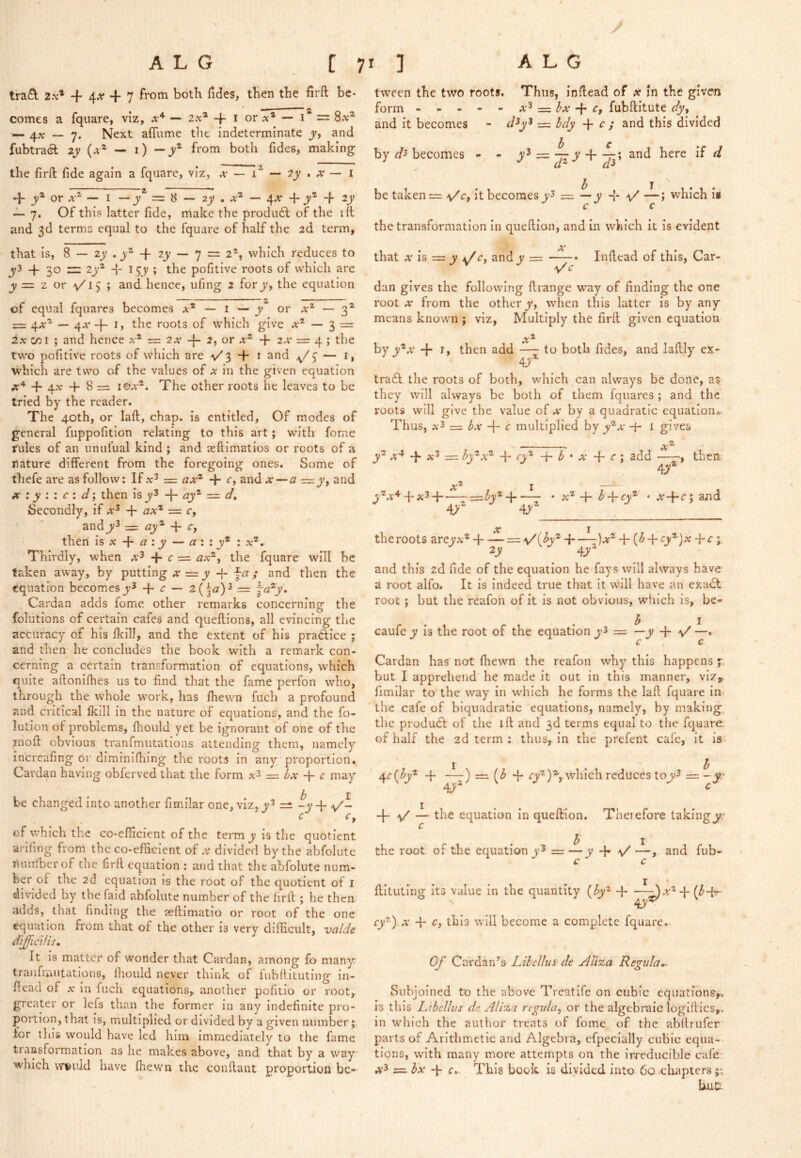 A L G [ 71 ] A L G
tract 2x² + 4x + 7 from both ſides, then the firſt be-
comes a ſquare, viz, x⁴ — 2x² + 1 or (x² — 1)² = 8x²
— 4x — 7. Next aſſume the indeterminate y, and
ſubtract 2y (x² — 1) — y² from both ſides, making
the firſt ſide again a ſquare, viz, (x² — 1)² — 2y . x² — 1
+ y² or (x² — 1 — y)² = 8 — 2y . x² — 4x + y² + 2y
— 7. Of this latter ſide, make the product of the 1ſt
and 3d terms equal to the ſquare of half the 2d term,
that is, 8 — 2y . y² + 2y — 7 = 2², which reduces to
y³ + 30 = 2y² + 15y ; the poſitive roots of which are
y = 2 or √15 ; and hence, uſing 2 for y, the equation
of equal ſquares becomes (x² — 1 — y)² or (x² — 3)²
= 4x² — 4x + 1, the roots of which give x² — 3 =
2x ∽ 1 ; and hence x² = 2x + 2, or x² + 2x = 4 ; the
two poſitive roots of which are √3 + 1 and √5 — 1,
which are two of the values of x in the given equation
x⁴ + 4x + 8 = 10x². The other roots he leaves to be
tried by the reader.
The 40th, or laſt, chap. is entitled, Of modes of
general ſuppoſition relating to this art ; with ſome
rules of an unuſual kind ; and æſtimatios or roots of a
nature different from the foregoing ones. Some of
theſe are as follow: If x³ = ax² + c, and x — a = y, and
x : y : : c : d; then is y³ + ay² = d.
Secondly, if x³ + ax² = c,
and y³ = ay² + c,
then is x + a : y — a : : y² : x².
Thirdly, when x³ + c = ax², the ſquare will be
taken away, by putting x = y + ⅓a ; and then the
equation becomes y³ + c — 2(⅓a)³ = ⅓a²y.
Cardan adds ſome other remarks concerning the
ſolutions of certain caſes and queſtions, all evincing the
accuracy of his ſkill, and the extent of his practice ;
and then he concludes the book with a remark con-
cerning a certain transformation of equations, which
quite aſtoniſhes us to find that the ſame perſon who,
through the whole work, has ſhewn ſuch a profound
and critical ſkill in the nature of equations, and the ſo-
lution of problems, ſhould yet be ignorant of one of the
moſt obvious tranſmutations attending them, namely
increaſing or diminiſhing the roots in any proportion.
Cardan having obſerved that the form x³ = bx + c may
be changed into another ſimilar one, viz, y³ = b/c y + √1/c,
of which the co-efficient of the term y is the quotient
ariſing from the co-efficient of x divided by the abſolute
number of the firſt equation : and that the abſolute num-
ber of the 2d equation is the root of the quotient of 1
divided by the ſaid abſolute number of the firſt ; he then
adds, that finding the æſtimatio or root of the one
equation from that of the other is very difficult, valde
difficilis.
It is matter of wonder that Cardan, among ſo many
tranſmutations, ſhould never think of ſubſtituting in-
ſtead of x in ſuch equations, another poſitio or root,
greater or leſs than the former in any indefinite pro-
portion, that is, multiplied or divided by a given number ;
for this would have led him immediately to the ſame
transformation as he makes above, and that by a way
which would have ſhewn the conſtant proportion be-
tween the two roots. Thus, inſtead of x in the given
form - - - - - x³ = bx + c, ſubſtitute dy,
and it becomes - d³y³ = bdy + c ; and this divided
by d³ becomes - - y³ = b/d² y + c/d³; and here if d
be taken = √c, it becomes y³ = b/c y + √1/c; which is
the transformation in queſtion, and in which it is evident
that x is = y √c, and y = x/√c. Inſtead of this, Car-
dan gives the following ſtrange way of finding the one
root x from the other y, when this latter is by any
means known ; viz, Multiply the firſt given equation
by y²x + 1, then add x²/4y² to both ſides, and laſtly ex-
tract the roots of both, which can always be done, as
they will always be both of them ſquares ; and the
roots will give the value of x by a quadratic equation.
Thus, x³ = bx + c multiplied by y²x + 1 gives
y² x⁴ + x³ = by²x² + cy² + b · x + c ; add x²/4y², then
y²x⁴ + x³ + x²/4y² = by² + 1/4y² · x² + b + cy² · x + c ; and
the roots are yx² + x/2y = √(by² + 1/4y²)x² + (b + cy²)x + c ;
and this 2d ſide of the equation he ſays will always have
a root alſo. It is indeed true that it will have an exact
root ; but the reaſon of it is not obvious, which is, be-
cauſe y is the root of the equation y³ = b/c y + √1/c.
Cardan has not ſhewn the reaſon why this happens ;
but I apprehend he made it out in this manner, viz,
ſimilar to the way in which he forms the laſt ſquare in
the caſe of biquadratic equations, namely, by making
the product of the 1ſt and 3d terms equal to the ſquare
of half the 2d term : thus, in the preſent caſe, it is
4c(by² + 1/4y²) = (b + cy²)², which reduces to y³ = b/c y
+ √1/c the equation in queſtion. Therefore taking y
the root of the equation y³ = b/c y + √1/c, and ſub-
ſtituting its value in the quantity (by² + 1/4y²) x² + (b +
cy²) x + c, this will become a complete ſquare.
Of Cardan's Libellus de Aliza Regula.
Subjoined to the above Treatiſe on cubic equations,
is this Libellus de Aliza regula, or the algebraic logiſtics,
in which the author treats of ſome of the abſtruſer
parts of Arithmetic and Algebra, eſpecially cubic equa-
tions, with many more attempts on the irreducible caſe
x³ = bx + c. This book is divided into 60 chapters ;
but